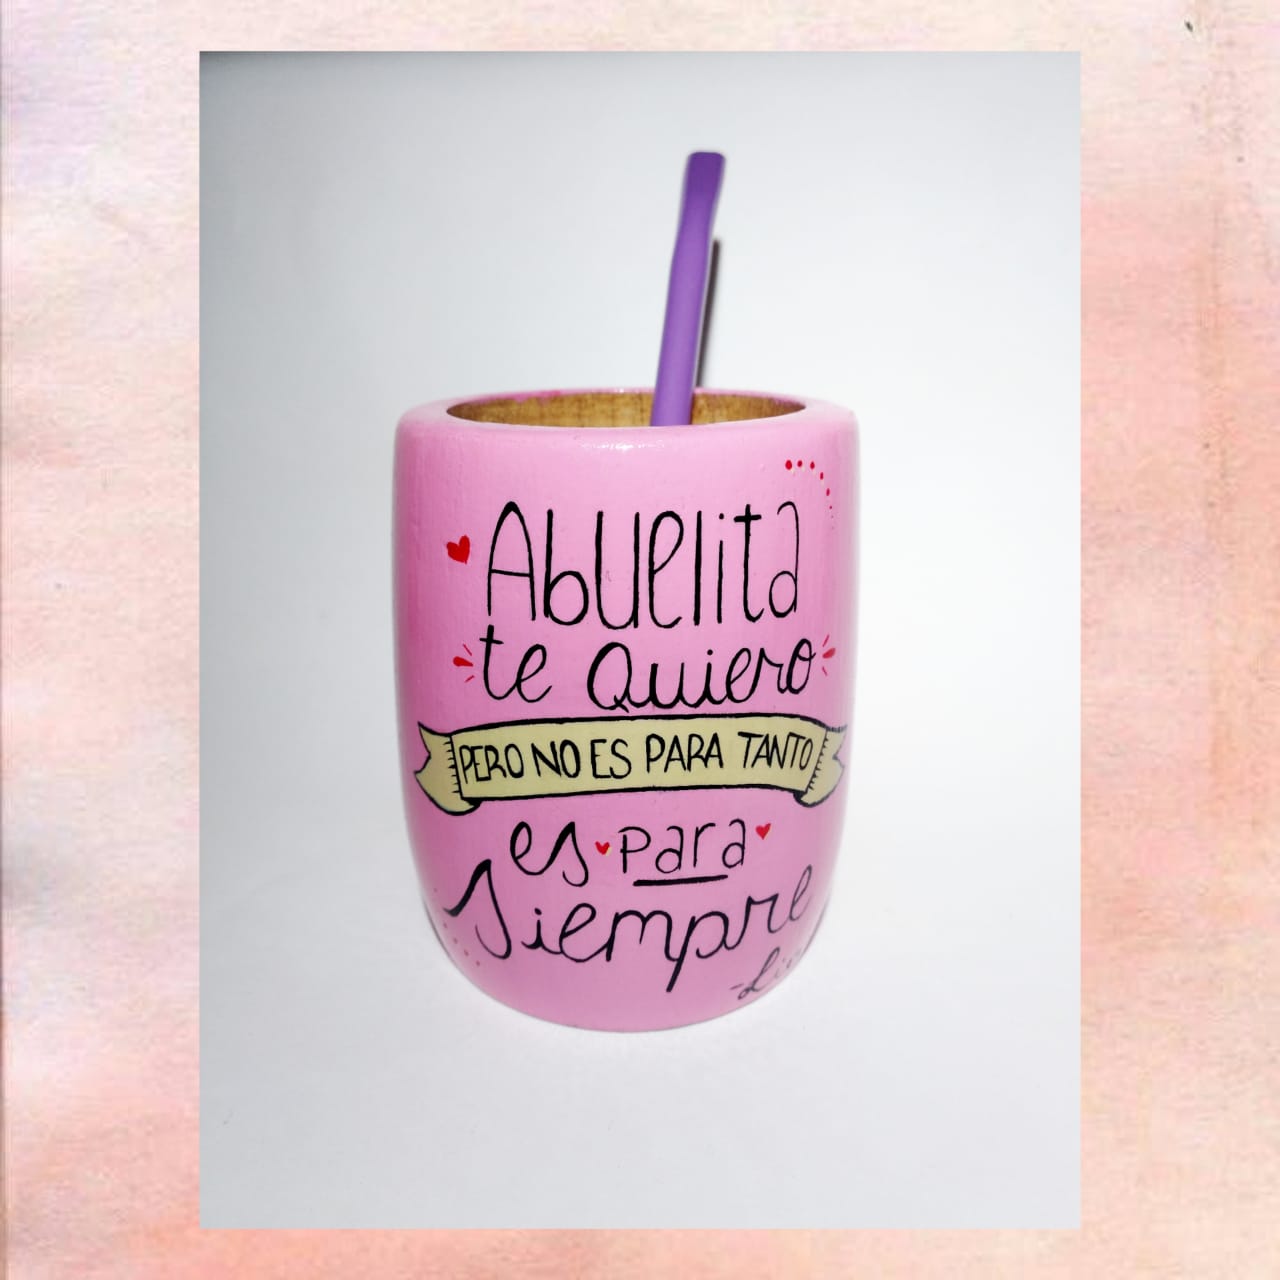 Abuelita
te Quiero
PERO NO ES PARA TANTO
es para
Siempre